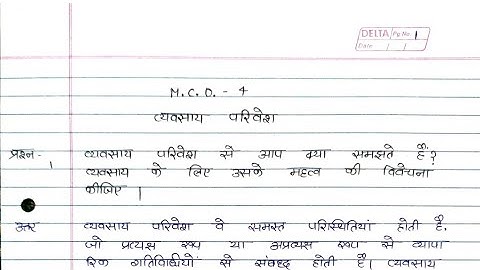 DELTA Pg No. 1
Date / /
M.C.O. - 4
व्यवसाय परिवेश
प्रश्न - 1 व्यवसाय परिवेश से आप क्या समझते हैं?
व्यवसाय के लिए उसके महत्व की विवेचना
कीजिए।
उत्तर व्यवसाय परिवेश वे समस्त परिस्थितियां होती हैं,
जो प्रत्यक्ष रूप या अप्रत्यक्ष रूप से व्यापा
रिक गतिविधीयों से संबध्द होती हैं। व्यवसाय